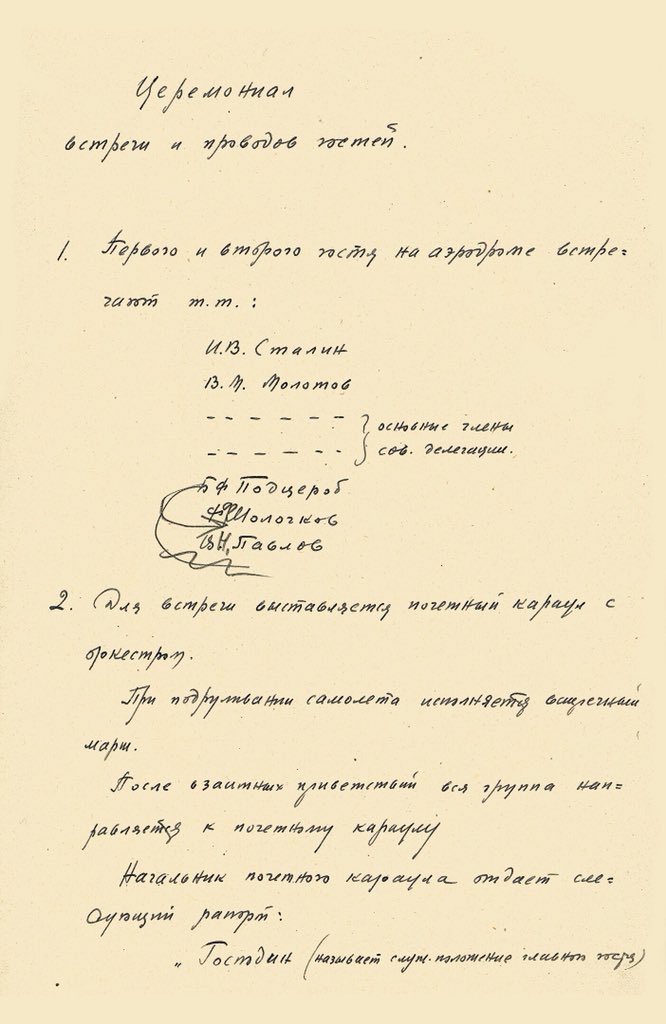 Церемониал
встречи и проводов гостей.
1. Первого и второго гостя на аэродроме встре=
чают т.т.:
И.В. Сталин
В.М. Молотов
– – – – – – } основные члены
– – – – – – сов. делегации.
Б.Ф. Подцероб
Молочков
В.Н. Павлов
2. Для встречи выставляется почетный караул с
оркестром.
При подруливании самолета исполняется встречный
марш.
После взаимных приветствий вся группа нап=
равляется к почетному караулу
Начальник почетного караула отдает сле=
дующий рапорт:
„Господин (называет служ. положение главного гостя)